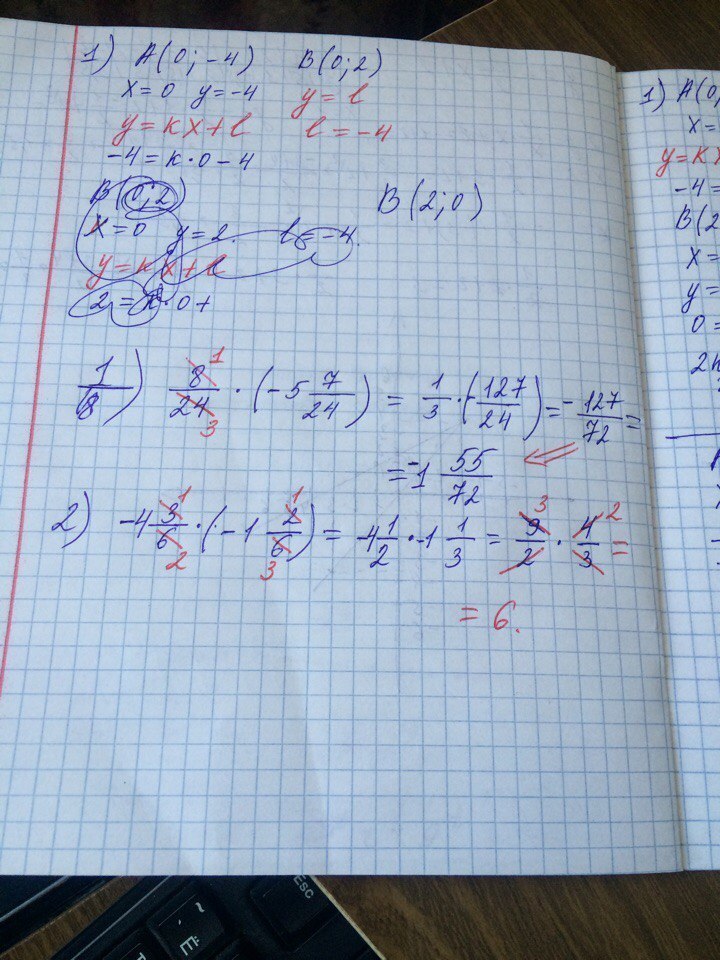 1) A(0; -4) B(0; 2)
x = 0 y = -4 y = l
y = кx + l l = -4
-4 = к · 0 - 4
B(0; 2) B(2; 0)
x = 0 y = 2. l = -4.
y = кx + l
2 = к · 0 +
1/8) 8/24 · (-5 7/24) = 1/3 · (-127/24) = -127/72 =
1
3
= -1 55/72
2) -4 3/6 · (-1 2/6) = -4 1/2 · -1 1/3 = 9/2 · 4/3 =
1 1 3 2
2 3
= 6.
1) A(0,
x =
y = кx
-4 =
B(2
x =
y =
0 =
2к
Esc
Ё